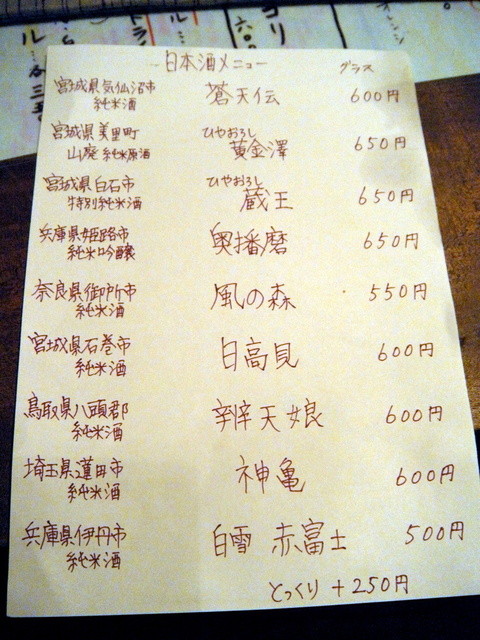 日本酒メニュー グラス
宮城県気仙沼市
純米酒 蒼天伝 600円
宮城県美里町 ひやおろし
山廃 純米原酒 黄金澤 650円
宮城県白石市 ひやおろし
特別純米酒 蔵王 650円
兵庫県姫路市 奥播磨 650円
純米吟醸
奈良県御所市 風の森 550円
純米酒
宮城県石巻市 日高見 600円
純米酒
鳥取県八頭郡 辨天娘 600円
純米酒
埼玉県蓮田市 神亀 600円
純米酒
兵庫県伊丹市 白雪 赤富士 500円
純米酒
とっくり +250円